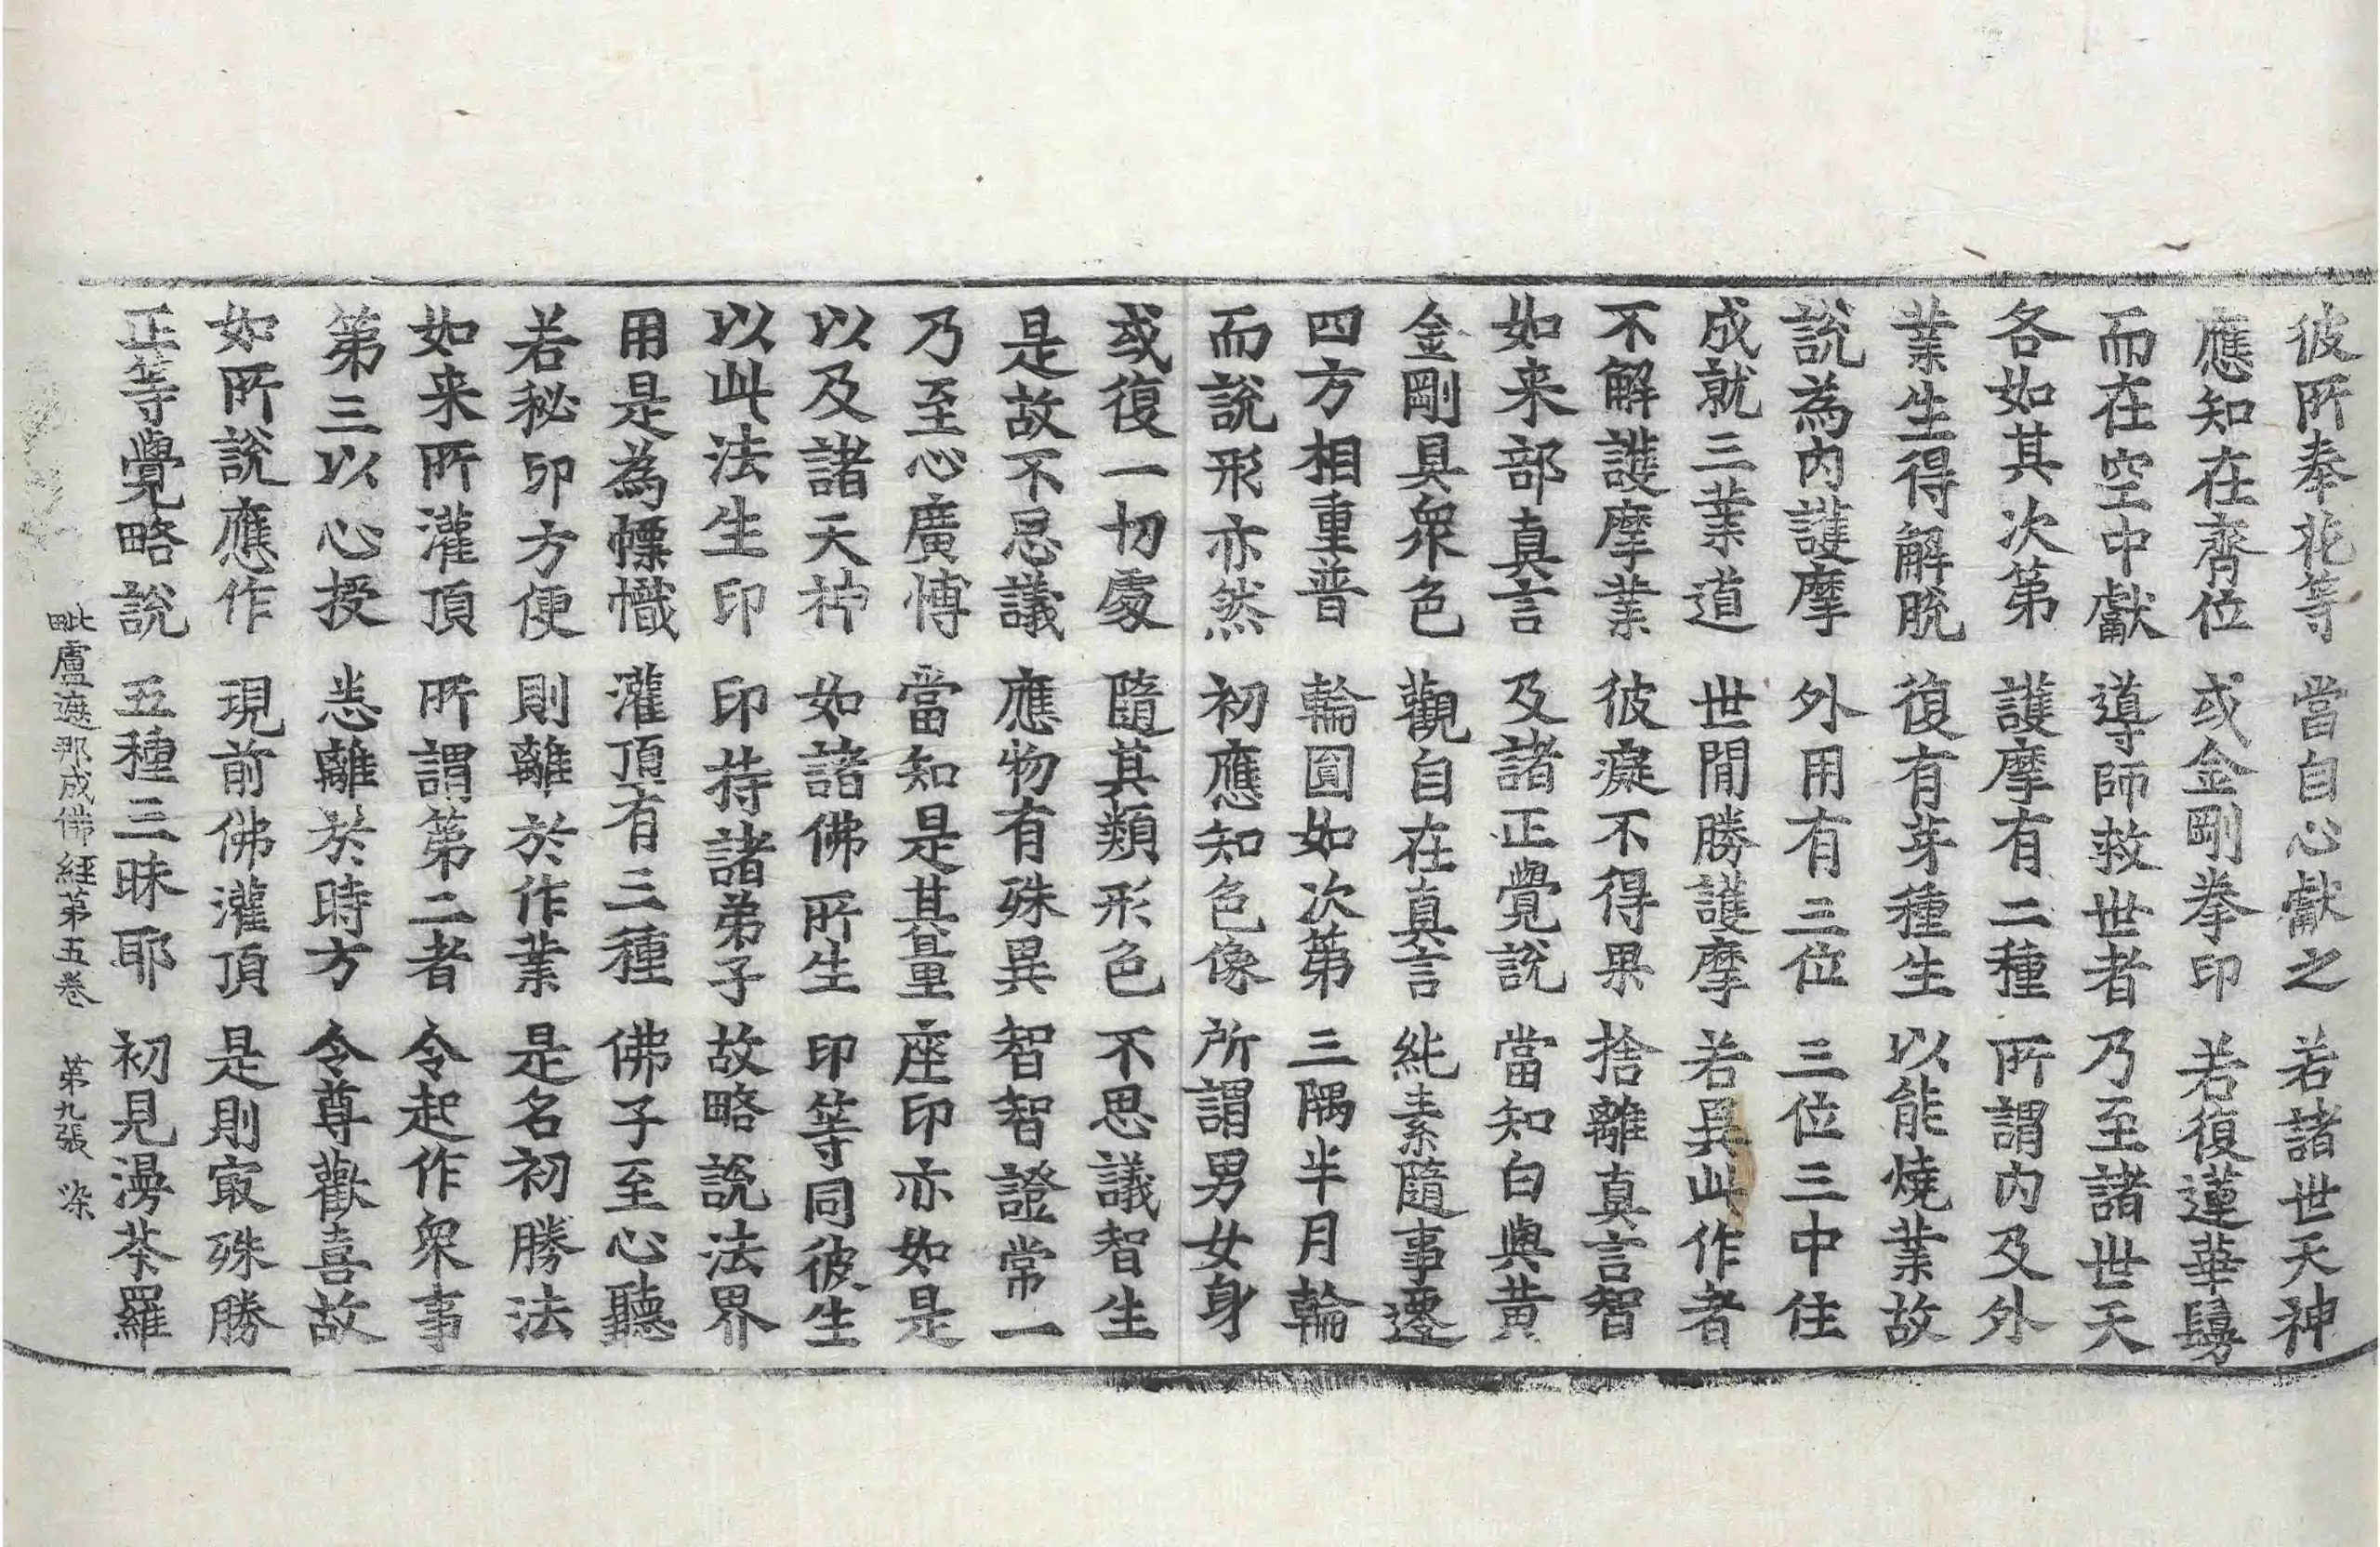 彼所奉花等　當自心獻之　若諸世天神
應知在齊位　或金剛拳印　若復蓮華鬘
而在空中獻　導師救世者　乃至諸世天
各如其次第　護摩有二種　所謂内及外
業生得解脫　復有芽種生　以能燒業故
說為内護摩　外用有三位　三位三中住
成就三業道　世閒勝護摩　若異此作者
不解護摩業　彼癡不得果　捨離真言智
如来部真言　及諸正覺說　當知白與黄
金剛具衆色　觀自在真言　純素隨事遷
四方相重普　輪圓如次第　三隅半月輪
而說形亦然　初應知色像　所謂男女身
或復一切處　隨其類形色　不思議智生
是故不思議　應物有殊異　智智證常一
乃至心廣博　當知是其量　座印亦如是
以及諸天神　如諸佛所生　印等同彼生
以此法生印　印持諸弟子　故略說法界
用是為幖幟　灌頂有三種　佛子至心聽
若秘印方便　則離於作業　是名初勝法
如来所灌頂　所謂第二者　令起作衆事
第三以心授　悉離於時方　令尊歡喜故
如所說應作　現前佛灌頂　是則㝡殊勝
正等覺略說　五種三昧耶　初見漫茶羅
毗盧遮那成佛經第五卷　第九張　染